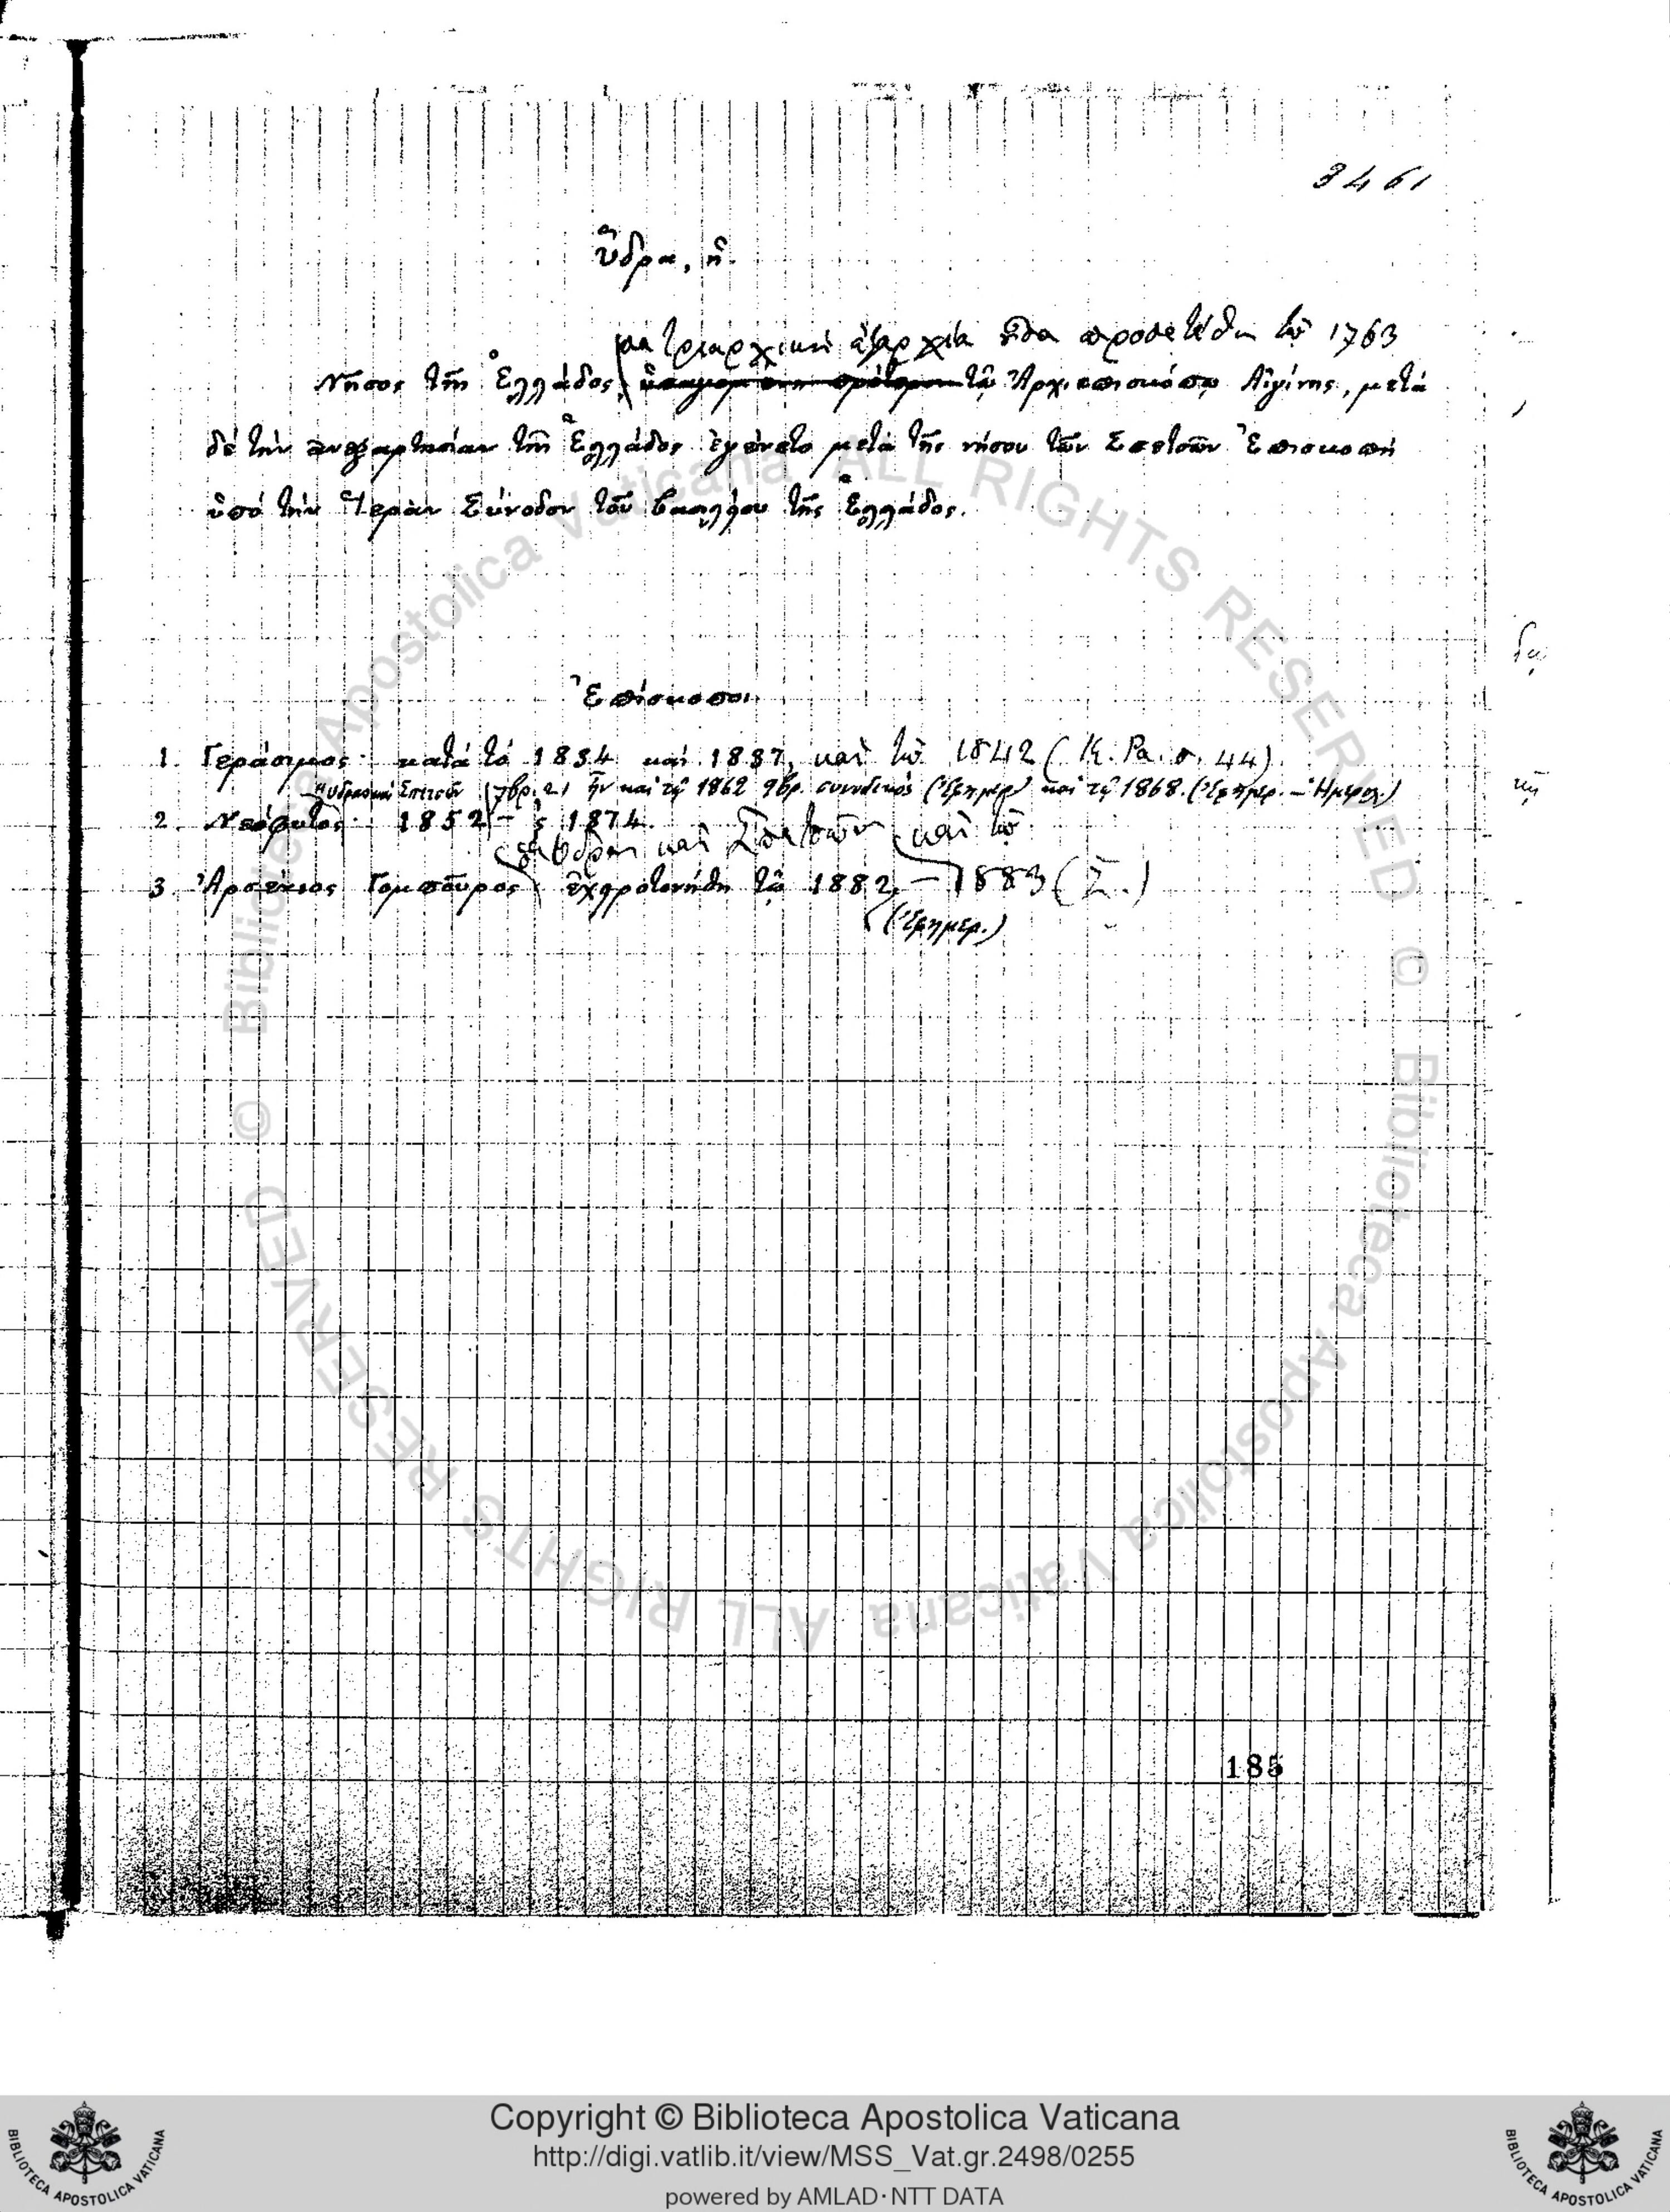 3461
Ὕδρα, ἡ.
πατριαρχικὴ ἐξαρχία οὖσα προσετέθη τῷ 1763
Νῆσος τῆς Ἑλλάδος, τῷ Ἀρχιεπισκόπῳ Αἰγίνης, μετὰ
δὲ τὴν ἀνεξαρτησίαν τῆς Ἑλλάδος ἐγένετο μετὰ τῆς νήσου τῶν Σπετσῶν Ἐπισκοπὴ
ὑπὸ τὴν Ἱερὰν Σύνοδον τοῦ βασιλείου τῆς Ἑλλάδος.
Ἐπίσκοποι
1. Γεράσιμος· κατὰ τὸ 1834 καὶ 1837, καὶ τῷ 1842 (Κ. Ρα. σ. 44).
Σπετσῶν 7βρ. 21 ἦν καὶ τῷ 1862 9βρ. συνοδικὸς (Ἐφημερ) καὶ τῷ 1868. (Ἐφημερ. – Ἡμερολ.)
2. Νεόφυτος· 1852 – 1874.
Ὕδρας καὶ Σπετσῶν καὶ τῷ
3. Ἀρσένιος Γομποῦρος ἐχειροτονήθη τῷ 1882, – 1883 (Σ.)
(Ἐφημερ.)
185
© Biblioteca Apostolica Vaticana ALL RIGHTS RESERVED © Biblioteca Apostolica Vaticana ALL RIGHTS RESERVED
Copyright © Biblioteca Apostolica Vaticana
http://digi.vatlib.it/view/MSS_Vat.gr.2498/0255
powered by AMLAD·NTT DATA
BIBLIOTECA APOSTOLICA VATICANA
BIBLIOTECA APOSTOLICA VATICANA